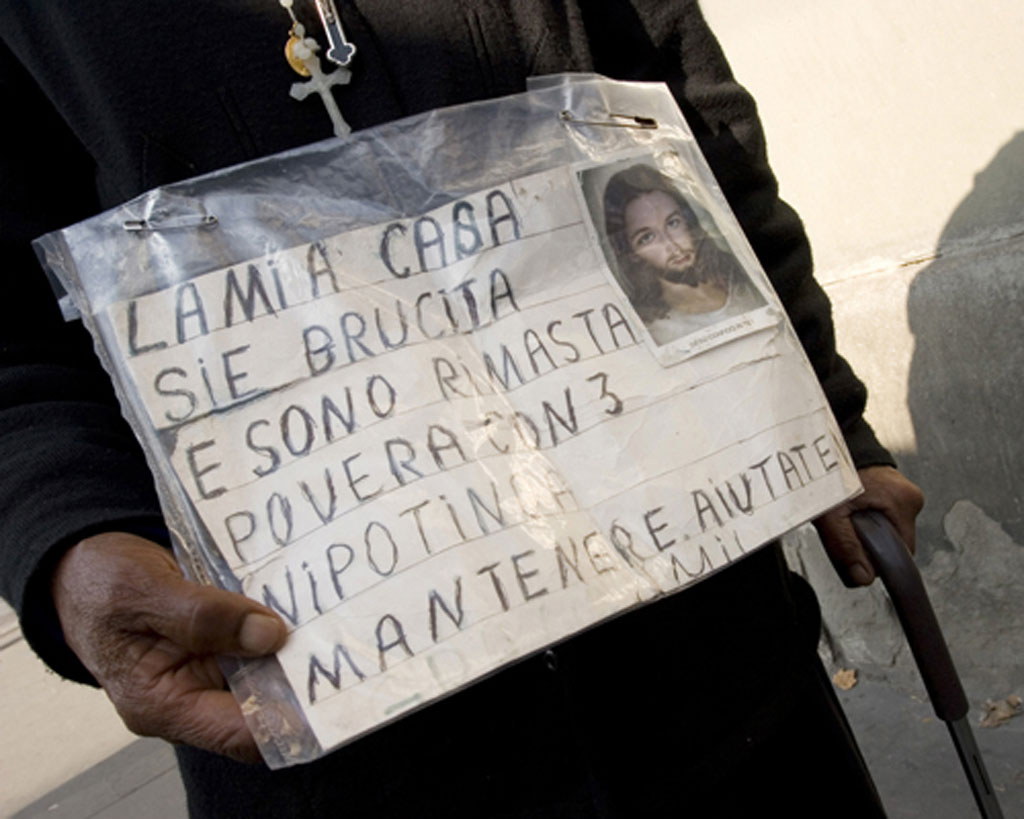 LA MIA CASA
SIE BRUCITA
E SONO RIMASTA
POVERA CON 3
NIPOTINI A
MANTENERE. AIUTATE
MI